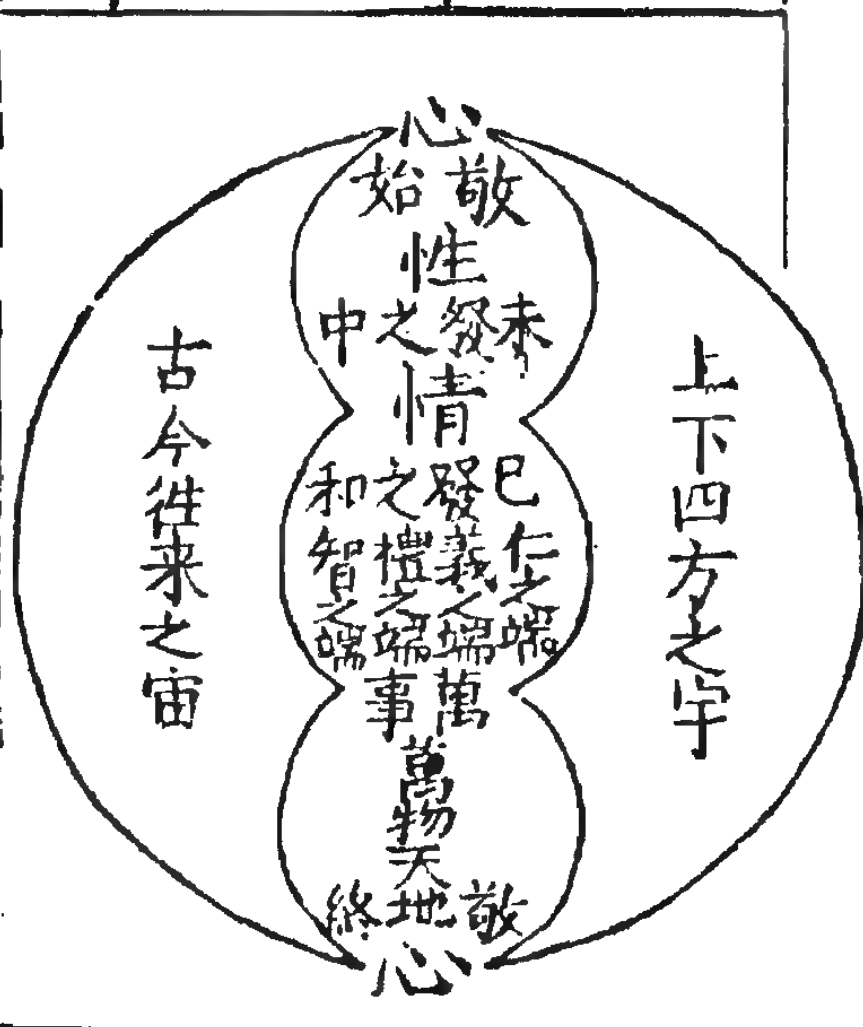 心
敬始
性
未發之中
情
已發之和
仁之端
義之端
禮之端
智之端
萬事
萬物
天地
敬終
心
上下四方之宇
古今徃来之宙